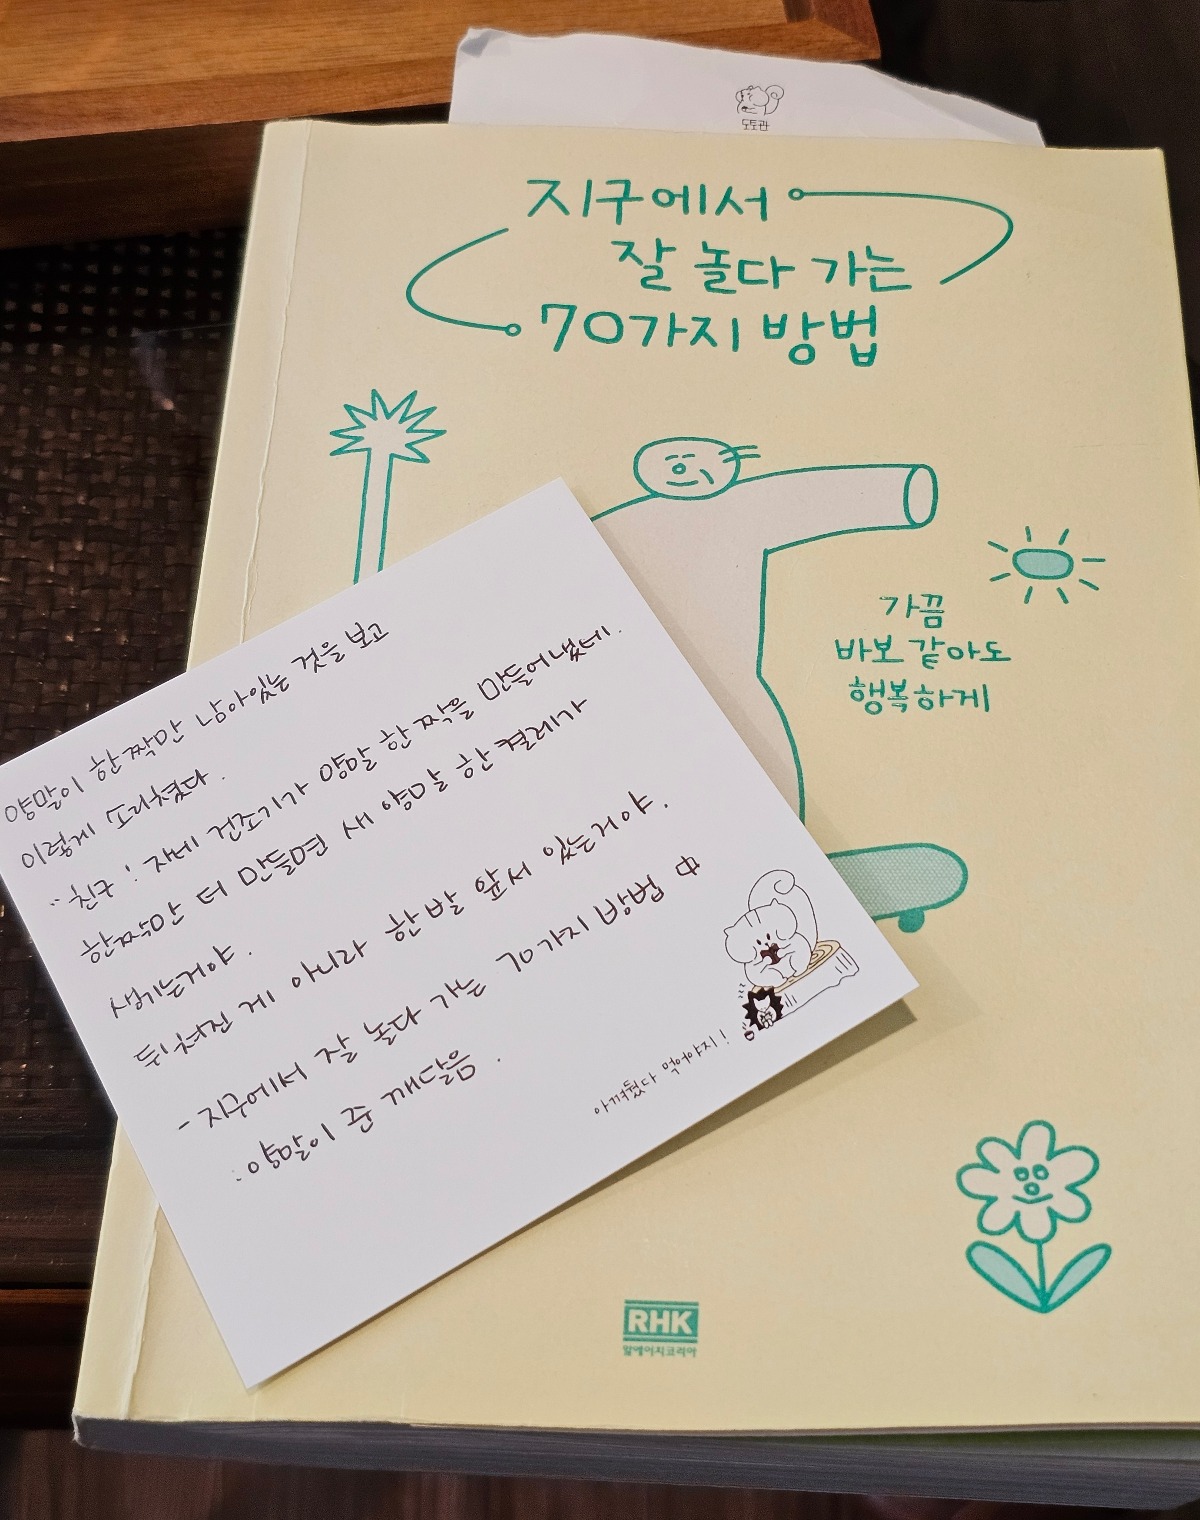 도토관
지구에서
잘 놀다 가는
70가지 방법
가끔
바보 같아도
행복하게
양말이 한짝만 남아있는 것을 보고
이렇게 소리쳤다.
"친구! 자네 건조기가 양말 한짝을 만들어냈네.
한짝만 더 만들면 새 양말 한 켤레가
생기는거야.
뒤쳐진 게 아니라 한발 앞서 있는거야.
- 지구에서 잘 놀다 가는 70가지 방법 中
: 양말이 준 깨달음.
아껴뒀다 먹어야지!
RHK
알에이치코리아